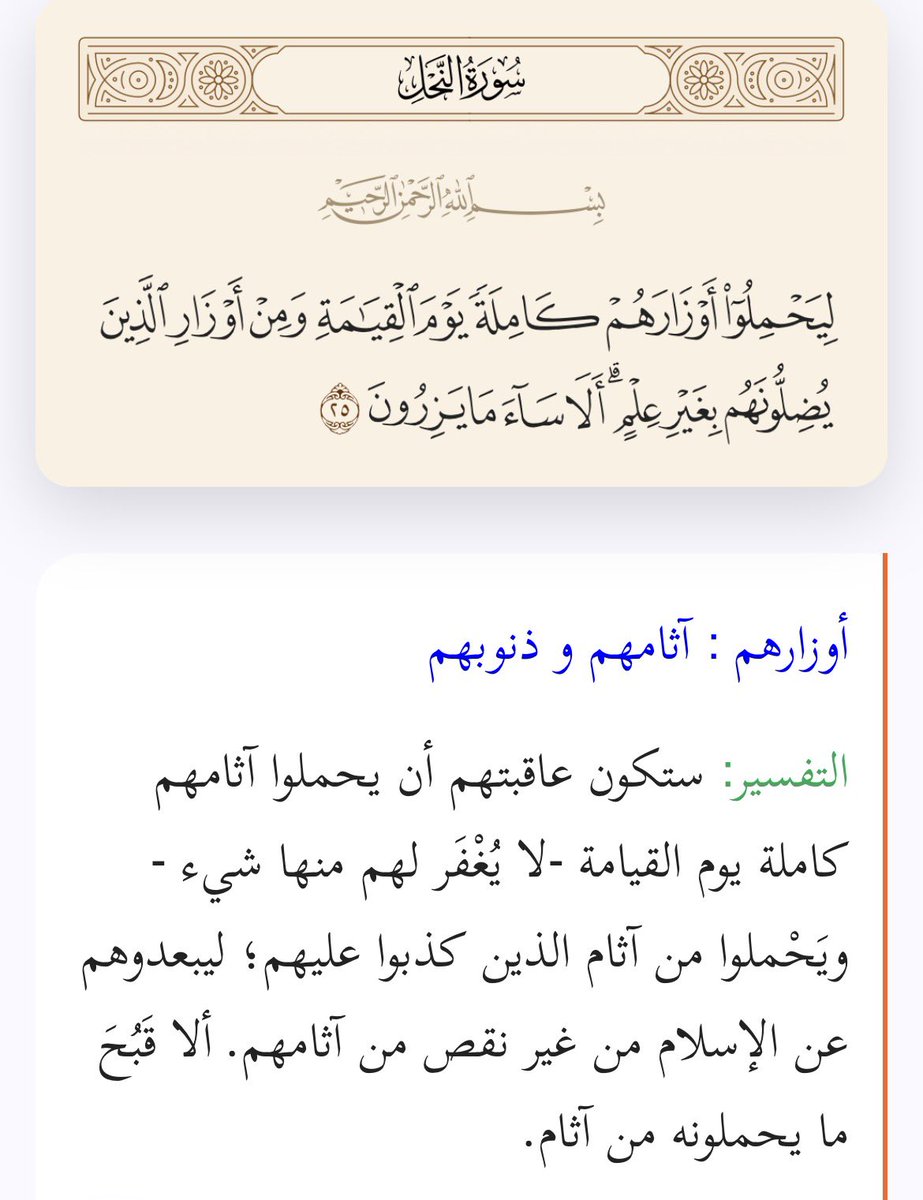 سُورَةُ النَّحْلِ
بِسْمِ ٱللَّهِ ٱلرَّحْمَٰنِ ٱلرَّحِيمِ
لِيَحْمِلُوٓا۟ أَوْزَارَهُمْ كَامِلَةً يَوْمَ ٱلْقِيَٰمَةِ وَمِنْ أَوْزَارِ ٱلَّذِينَ
يُضِلُّونَهُم بِغَيْرِ عِلْمٍ ۗ أَلَا سَآءَ مَا يَزِرُونَ ٢٥
أوزارهم : آثامهم و ذنوبهم
التفسير: ستكون عاقبتهم أن يحملوا آثامهم
كاملة يوم القيامة -لا يُغْفَر لهم منها شيء -
ويَحْملوا من آثام الذين كذبوا عليهم؛ ليبعدوهم
عن الإسلام من غير نقص من آثامهم. ألا قَبُحَ
ما يحملونه من آثام.